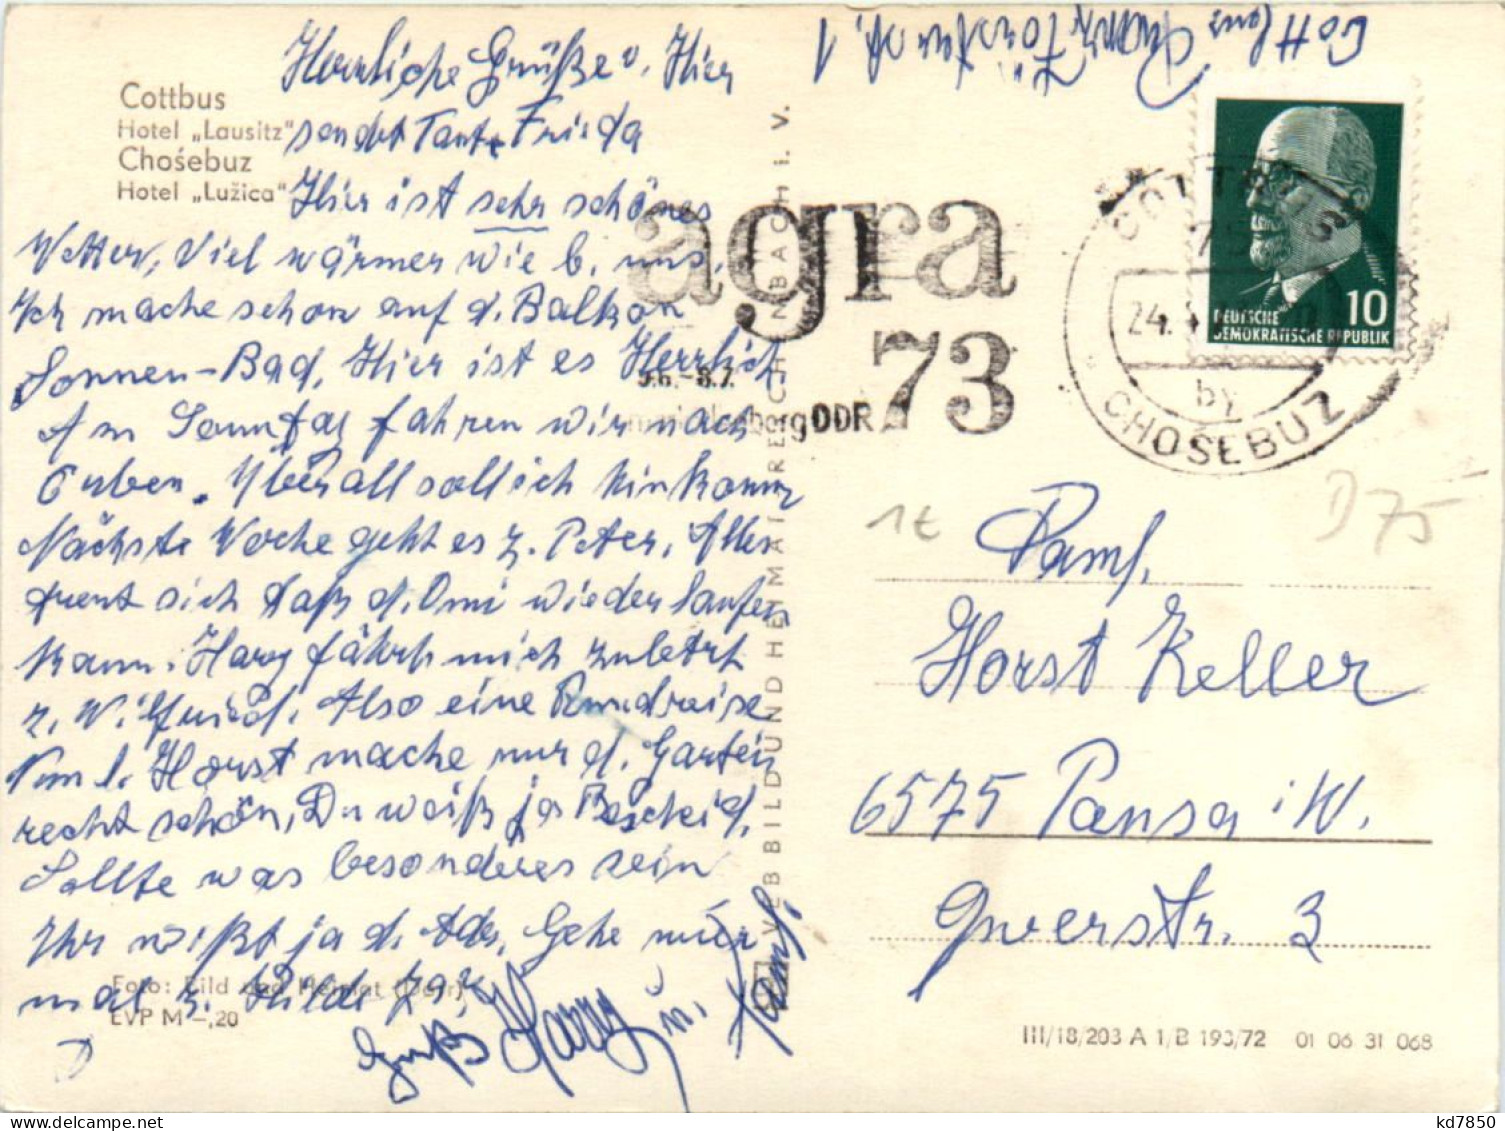 Cottbus
Hotel „Lausitz"
Chośebuz
Hotel „Lužica"
Herrliche Grüße v. Hier
sendet Tante Frieda
Hier ist sehr schönes
Wetter, Viel wärmer wie b. uns.
Ich mache schon auf d. Balkon
Sonnen-Bad, Hier ist es Herrlich
Am Sonntag fahren wir nach
Guben. Überall soll ich hinkomm
Nächste Woche geht es z. Peter, Alles
freut sich daß d. Omi wieder laufen
kann. Harry fährt mich zuletzt
z. Wilfried. Also eine Rundreise
Horst mache nur d. Garten
recht schön, Du weißt ja Bescheid.
Sollte was besonderes sein
Ihr wißt ja d. Adr. Gehe nur
mal z. Hilde
Gruß Harry u. Fam.
Foto: Bild und Heimat
EVP M –,20
VEB BILD UND HEIMAT REICHENBACH i. V.
Cottbus 1
agra
73
5.6.–8.7.
DDR
COTTBUS
75
24.
by
CHOŚEBUZ
10
DEUTSCHE
DEMOKRATISCHE REPUBLIK
1€
D 75
Fam.
Horst Keller
6575 Pausa i. V.
Querstr. 3
III/18/203 A 1/B 193/72 01 06 31 068
kd7850